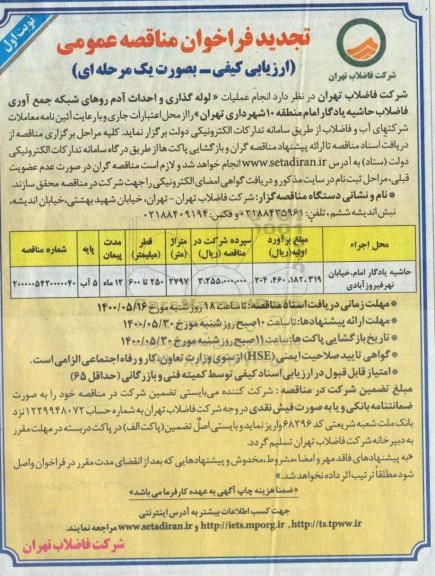 نوبت اول
تجدید فراخوان مناقصه عمومی
(ارزیابی کیفی - بصورت یک مرحله ای)
شرکت فاضلاب تهران
شرکت فاضلاب تهران در نظر دارد انجام عملیات « لوله گذاری و احداث آدم روهای شبکه جمع آوری
فاضلاب حاشیه یادگار امام منطقه ۱۰ شهرداری تهران» را از محل اعتبارات جاری و با رعایت آئین نامه معاملات
شرکتهای آب و فاضلاب از طریق سامانه تدارکات الکترونیکی دولت برگزار نماید. کلیه مراحل برگزاری مناقصه از
دریافت اسناد مناقصه تا ارائه پیشنهاد مناقصه گران و بازگشایی پاکت ها از طریق درگاه سامانه تدارکات الکترونیکی
دولت (ستاد) به آدرس www.setadiran.ir انجام خواهد شد و لازم است مناقصه گران در صورت عدم عضویت
قبلی، مراحل ثبت نام در سایت مذکور و دریافت گواهی امضای الکترونیکی را جهت شرکت در مناقصه محقق سازند.
* نام و نشانی دستگاه مناقصه گزار: شرکت فاضلاب تهران - تهران، خیابان شهید بهشتی، خیابان اندیشه،
نبش اندیشه ششم، تلفن: ۰۲۱۸۸۴۳۵۹۶۱ و فکس: ۰۲۱۸۸۴۰۹۱۹۴
محل اجراء | مبلغ برآورد اولیه (ریال) | سپرده شرکت در مناقصه (ریال) | متراژ (متر) | قطر (میلیمتر) | مدت پیمان | پایه | شماره مناقصه
حاشیه یادگار امام، خیابان نهر فیروزآبادی | ۲۰۴.۴۶۰.۱۸۲.۳۱۹ | ۳.۲۵۵.۰۰۰.۰۰۰ | ۲۷۹۷ | ۲۵۰ تا ۶۰۰ | ۱۲ ماه | ۵ آب | ۲۰۰۰۰۰۵۴۲۰۰۰۰۴۰
* مهلت زمانی دریافت اسناد مناقصه: تا ساعت ۱۸ روز شنبه مورخ ۱۴۰۰/۰۵/۱۶
* مهلت ارائه پیشنهادها: تا ساعت ۱۰ صبح روز شنبه مورخ ۱۴۰۰/۰۵/۳۰
* تاریخ بازگشایی پاکت ها: ساعت ۱۱ صبح روز شنبه مورخ ۱۴۰۰/۰۵/۳۰
* گواهی تایید صلاحیت ایمنی (HSE) از سوی وزارت تعاون، کار و رفاه اجتماعی الزامی است.
* امتیاز قابل قبول در ارزیابی اسناد کیفی توسط کمیته فنی و بازرگانی (حداقل ۶۵)
مبلغ تضمین شرکت در مناقصه : شرکت کننده می بایستی تضمین شرکت در مناقصه خود را به صورت
ضمانتنامه بانکی و یا به صورت فیش نقدی در وجه شرکت فاضلاب تهران به شماره حساب ۱۲۲۹۹۴۸۰۷۲ نزد
بانک ملت شعبه شریعتی کد ۶۸۲۹۶ واریز نماید و بایستی اصل تضمین (پاکت الف) در پاکت دربسته در مهلت مقرر
به دبیرخانه شرکت فاضلاب تهران تسلیم گردد.
«به پیشنهادهای فاقد مهر و امضا، مشروط، مخدوش و پیشنهادهایی که بعد از انقضای مدت مقرر در فراخوان واصل
شود مطلقاً ترتیب اثر داده نخواهد شد.»
«ضمنا هزینه چاپ آگهی به عهده کارفرما می باشد»
جهت کسب اطلاعات بیشتر به آدرس اینترنتی
http://ts.tpww.ir ، http://iets.mporg.ir و www.setadiran.ir مراجعه نمایند.
شرکت فاضلاب تهران